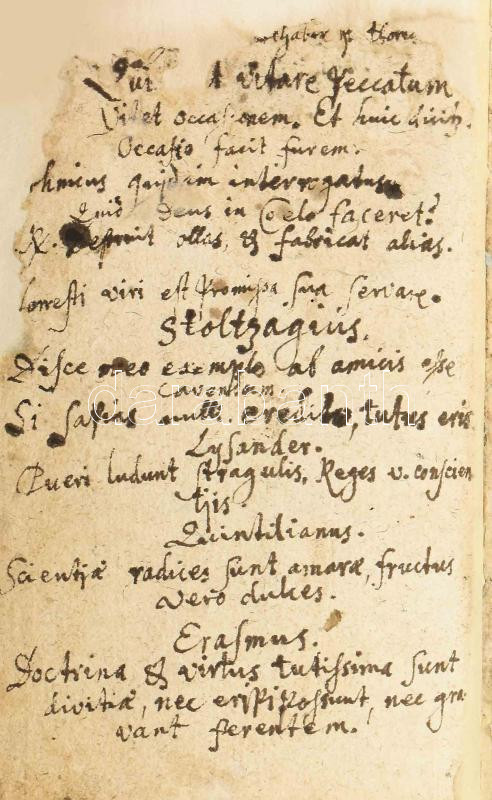 habet
Qui vitare Peccatum
Vitet occasionem. Et huic
Occasio facit furem.
hnicus quidam interrogatus
Quid Deus in Coelo faceret?
R. Destruit ollas, & fabricat alias.
honesti viri est promissa sua servare.
Stoltzagius.
Disce meo exemplo ab amicis esse
cavendum
Si sapias nulli credito, tutus eris
Lysander.
Pueri ludunt stragulis, Reges v. conscien
tiis.
Quintilianus.
Scientiæ radices sunt amaræ, fructus
vero dulces.
Erasmus.
Doctrina & virtus tutissima sunt
divitiæ, nec eripi possunt, nec gra
vant ferentem.
darabanth